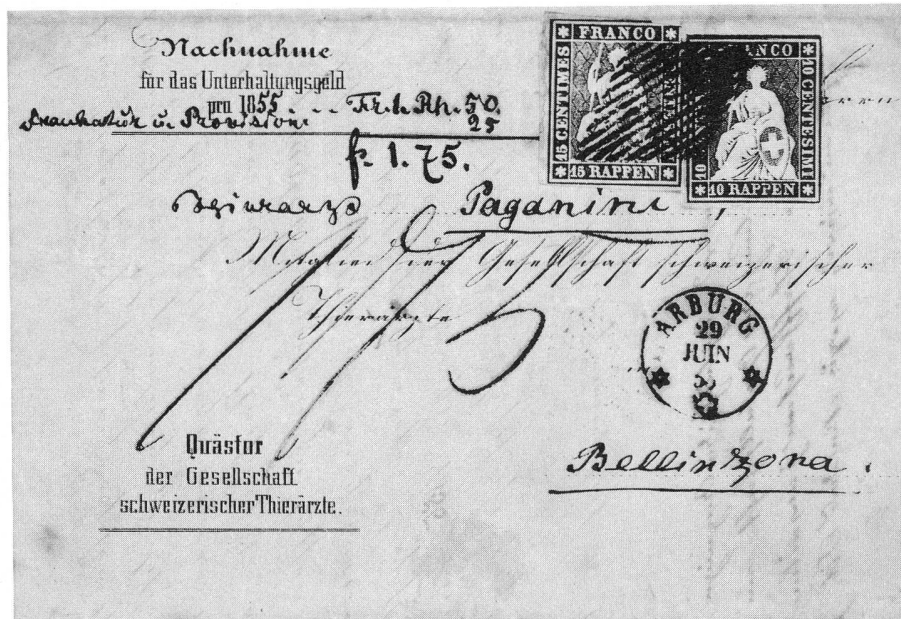 Nachnahme
für das Unterhaltungsgeld
pro 1855 . . Fr. 1. Rp. 50
Frankatur u. Provision. 25
fr. 1. 75.
FRANCO
15 CENTIMES
15 RAPPEN
FRANCO
10 CENTESIMI
10
10 RAPPEN
Herrn
Paganini,
Mitglied der Gesellschaft schweizerischer
Thierärzte
ARBURG
29
JUIN
Bellinzona.
Quästor
der Gesellschaft
schweizerischer Thierärzte.